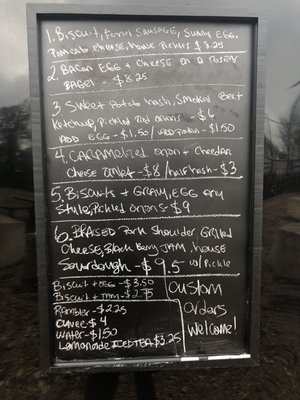 1. Biscuit, Fenn Sausage, Sunny Egg,
Pimento cheese, house Pickles $8.25
2. Bacon Egg & Cheese on a
Bagel - $8.25
3. Sweet Potato hash, Smoked Beet
Ketchup, Pickled Red onions - $6
ADD EGG - $1.50 / - $1.50
4. CARAMelized onion & Cheddar
Cheese omlet - $8 / half hash - $3
5. Biscuits & GRAVY, EGG any
Style, Pickled Onions - $9
6. BRAISED Pork Shoulder Grilled
Cheese, Black Berry JAM, house
Sourdough - $9.5 w/ Pickle
Biscuit + EGG - $3.50
Biscuit + JAM - $2.75
Custom
Orders
Welcome!
Rambler - $2.25
Cuvee - $4
Water - $1.50
Lemonade ICED TEA $3.25